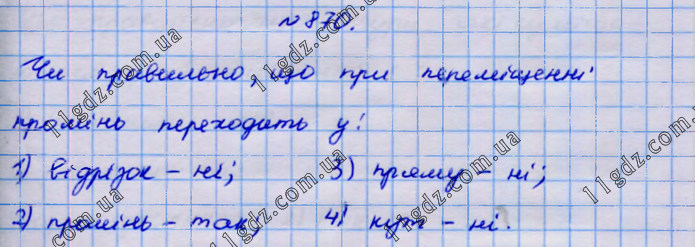 № 870.
Чи правильно, що при переміщенні
промінь переходить у:
1) відрізок – ні; 3) пряму – ні;
2) промінь – так; 4) кут – ні.
11gdz.com.ua
11gdz.com.ua
11gdz.com.ua
11gdz.com.ua
11gdz.com.ua
11gdz.com.ua